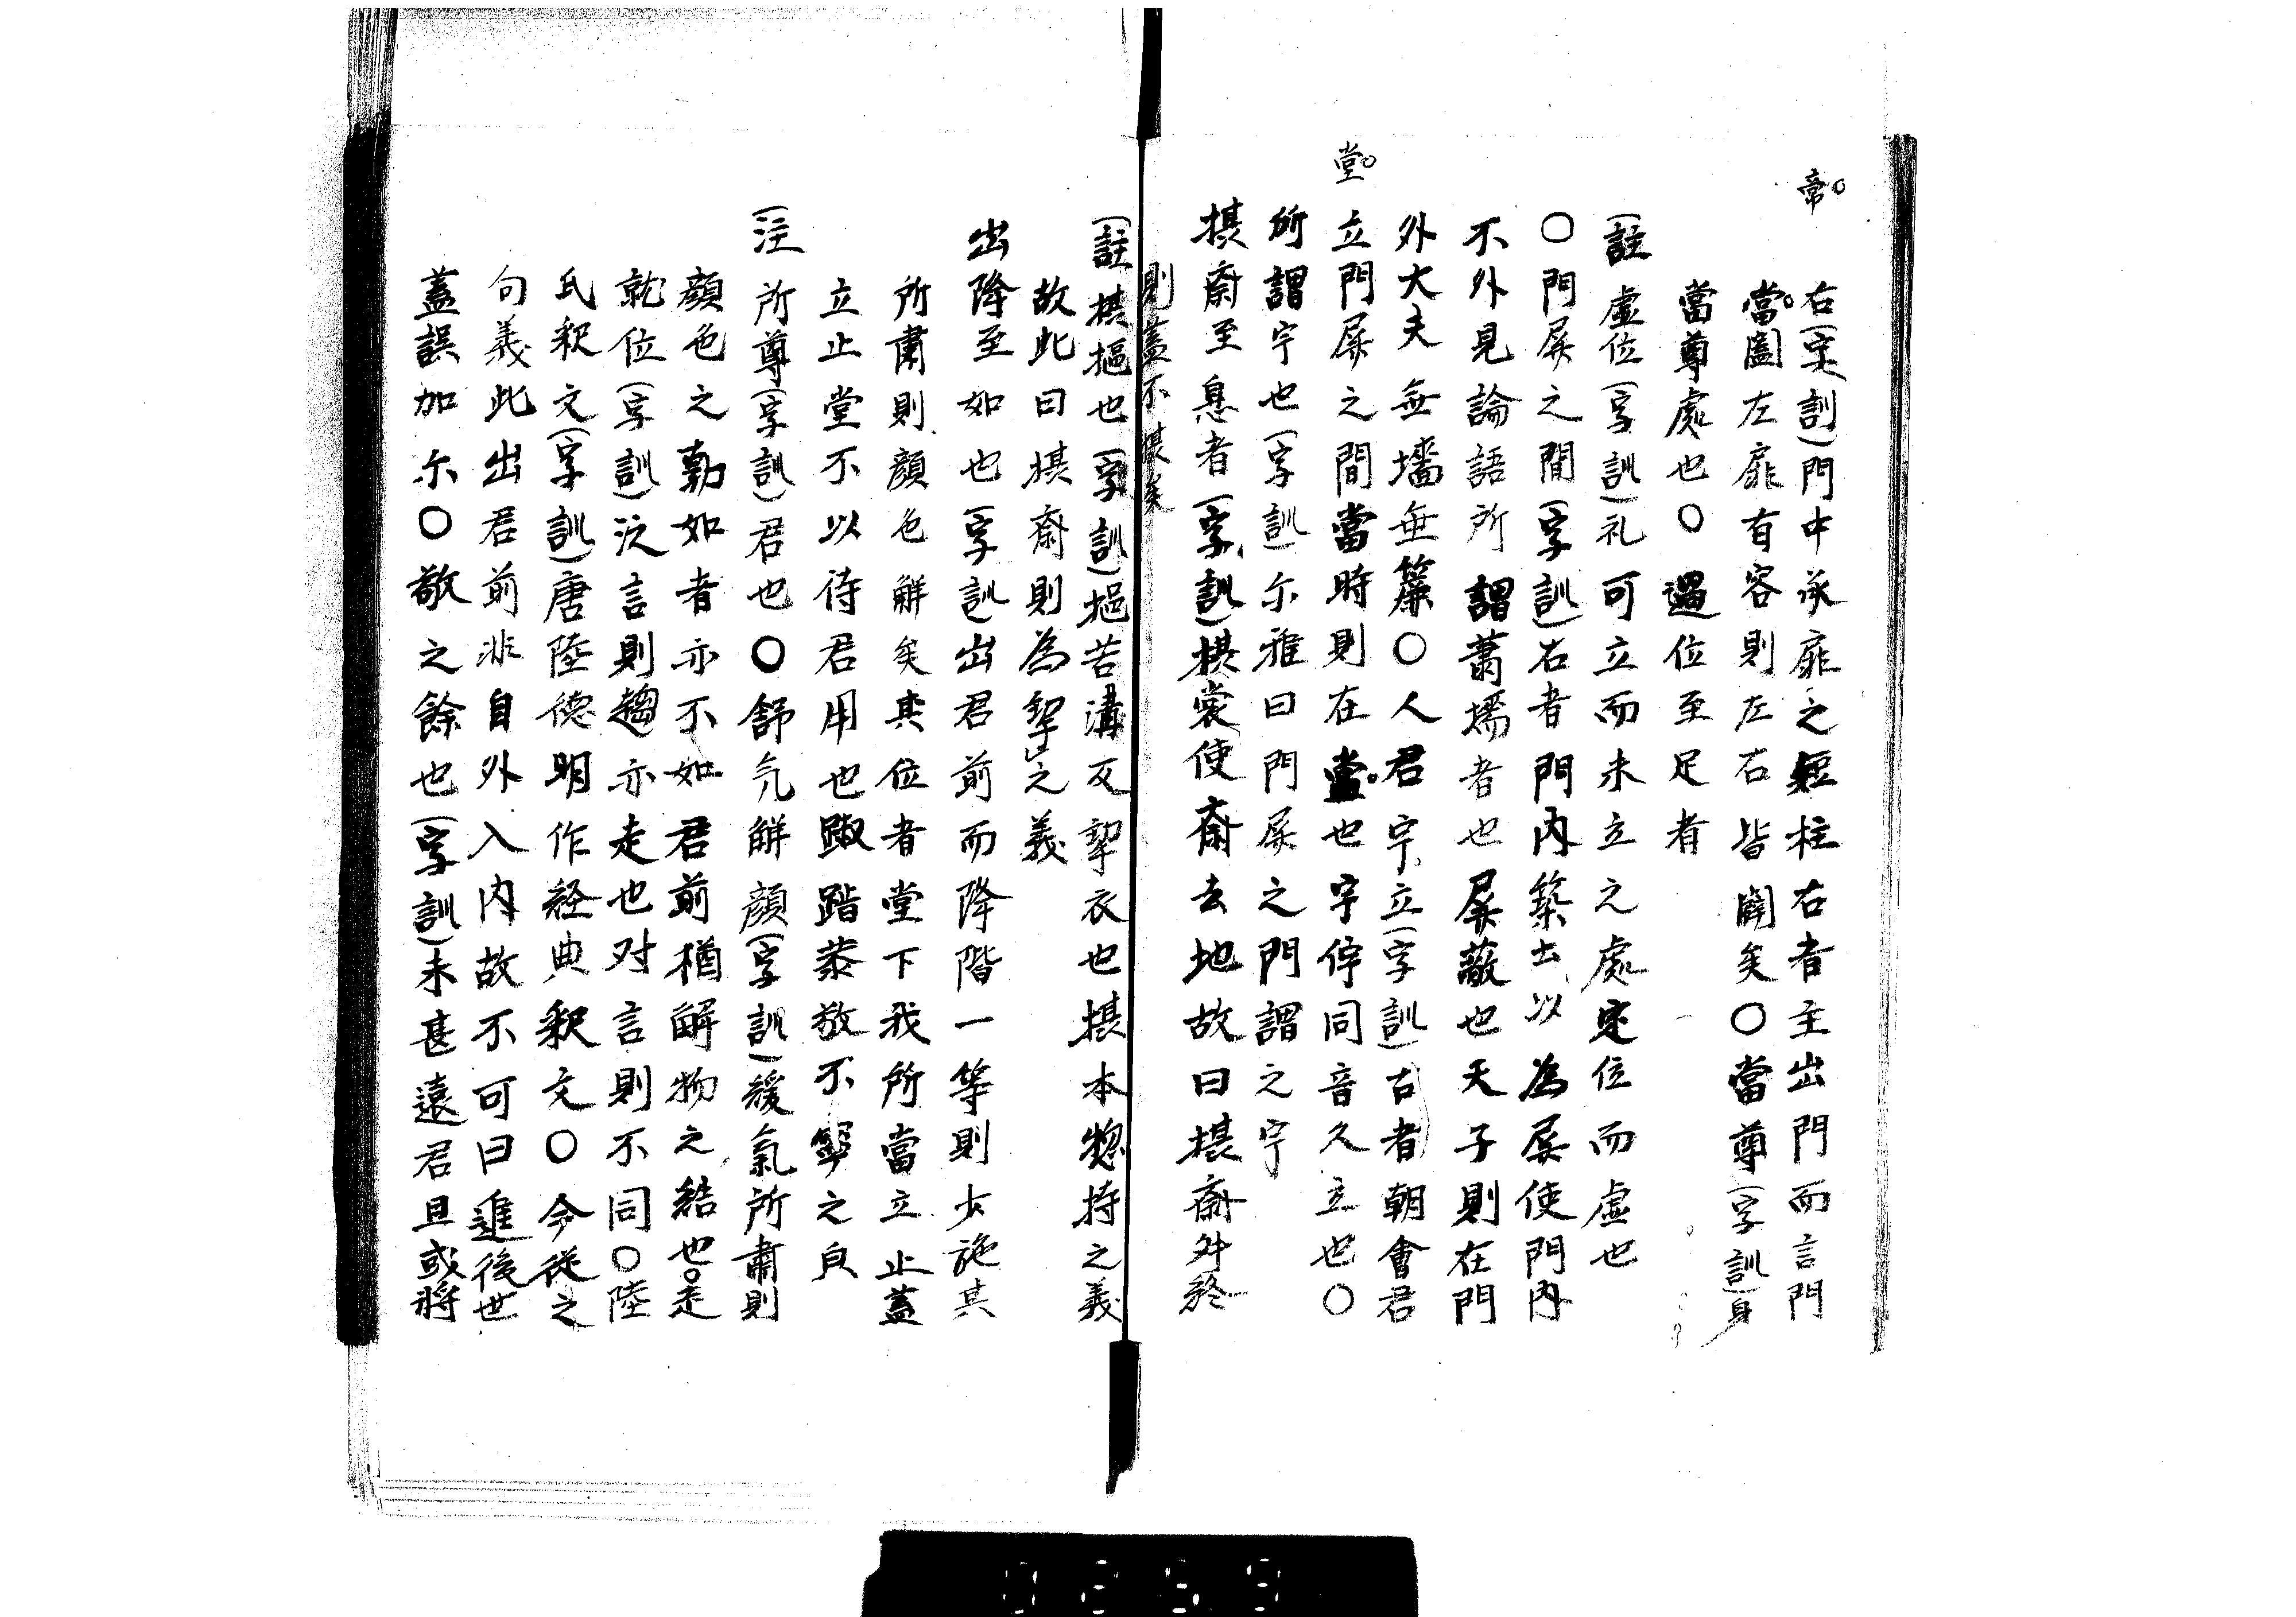 帝
右(字訓)門中承扉之短柱右者主出門而言門
當闔左扉有客則左右皆開矣〇當尊(字訓)身
當尊處也〇過位至足者
(註虛位(字訓)礼可立而未立之處定位而虛也
〇門屏之間(字訓)右者門内築土以為屏使門内
不外見論語所謂蕭墻者也屏蔽也天子則在門
外大夫無墻無簾〇人君宁立(字訓)古者朝會君
堂
立門屏之間當時則在當也宁佇同音久立也〇
所謂宁也(字訓)尓雅曰門屏之門謂之宁
摂齋至息者(字訓)摂裳使齋去地故曰摂齋升終
則蓋不摂矣
(註摂摳也(字訓)摳苦溝反挈衣也摂本惣持之義
故此曰摂齋則為挈之義
出降至如也(字訓)出君前而降階一等則少施其
所肅則顔色解矣其位者堂下我所當立止蓋
立止堂不以待君用也踧踖恭敬不寧之皃
(注所尊(字訓)君也〇舒气解顔(字訓)緩氣所肅則
顔色之勤如者亦不如君前猶解物之結也〇走
就位(字訓)泛言則趨亦走也対言則不同〇陸
氏釈文(字訓)唐陸德明作経典釈文〇今從之
句義此出君前非自外入内故不可曰進後世
蓋誤加尓〇敬之餘也(字訓)未甚遠君且或將